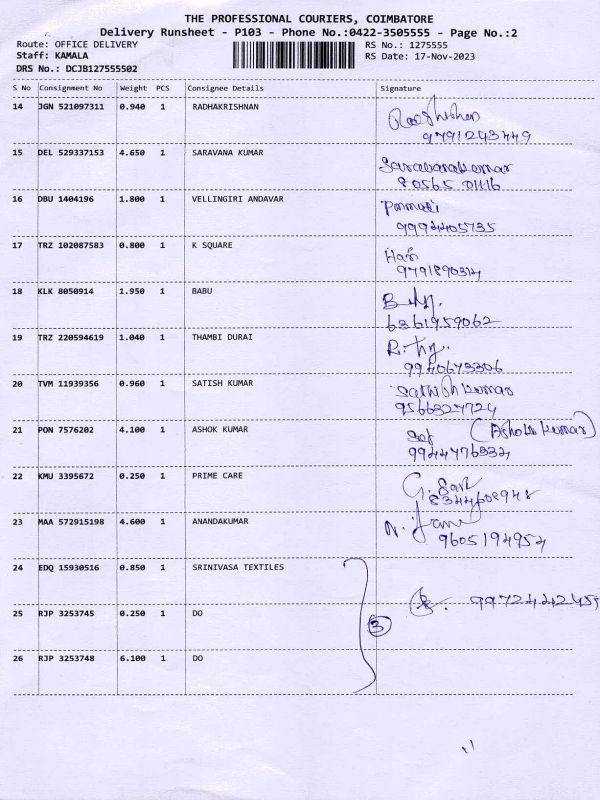 THE PROFESSIONAL COURIERS, COIMBATORE
Delivery Runsheet - P103 - Phone No.:0422-3505555 - Page No.:2
Route: OFFICE DELIVERY RS No.: 1275555
Staff: KAMALA RS Date: 17-Nov-2023
DRS No.: DCJB127555502
S No Consignment No Weight PCS Consignee Details Signature
14 JGN 521097311 0.940 1 RADHAKRISHNAN
9791243449
15 DEL 529337153 4.650 1 SARAVANA KUMAR Saravanakumar
80565 01116
16 DBU 1404196 1.800 1 VELLINGIRI ANDAVAR
9994405735
17 TRZ 102087583 0.800 1 K SQUARE Hari
9791890314
18 KLK 8050914 1.950 1 BABU
6361959062
19 TRZ 220594619 1.040 1 THAMBI DURAI
9940673306
20 TVM 11939356 0.960 1 SATISH KUMAR Sathish kumar
9566327724
21 PON 7576202 4.100 1 ASHOK KUMAR (Ashok kumar)
9944776332
22 KMU 3395672 0.250 1 PRIME CARE
8344608948
23 MAA 572915198 4.600 1 ANANDAKUMAR
9605194954
24 EDQ 15930516 0.850 1 SRINIVASA TEXTILES
25 RJP 3253745 0.250 1 DO 3
26 RJP 3253748 6.100 1 DO